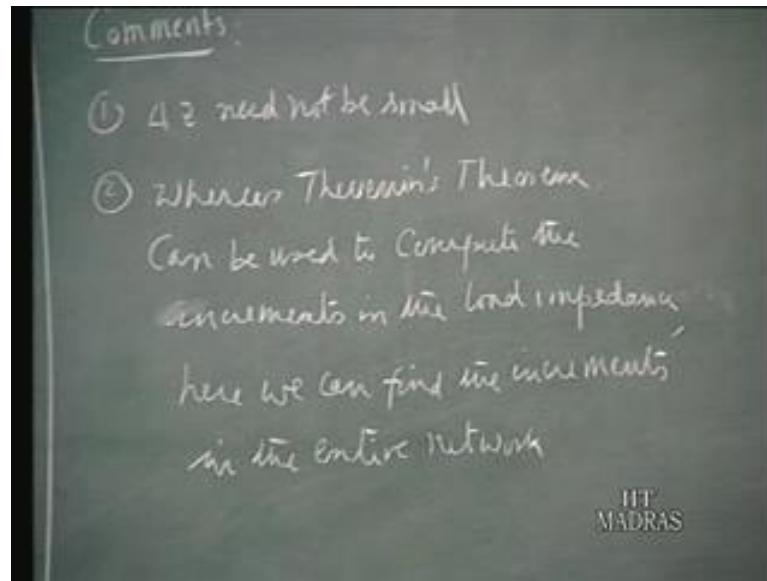 Comments:
① ΔZ need not be small
② Whereas Thevenin's Theorem
Can be used to Compute the
increments in the load impedance,
here we can find the increments
in the entire network
IIT
MADRAS